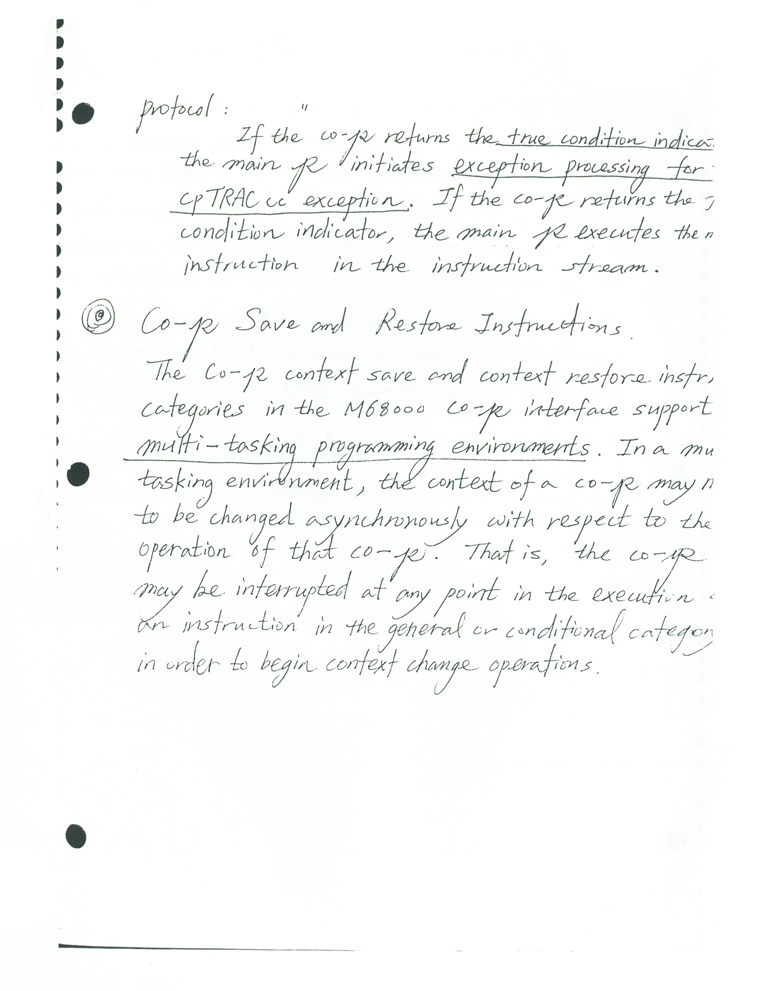 protocol : "
If the co-p returns the true condition indica
the main p initiates exception processing for
cpTRAC cc exception. If the co-p returns the
condition indicator, the main p executes the n
instruction in the instruction stream.
Co-p Save and Restore Instructions.
The Co-p context save and context restore instr
categories in the M68000 co-p interface support
multi-tasking programming environments. In a mu
tasking environment, the context of a co-p may n
to be changed asynchronously with respect to the
operation of that co-p. That is, the co-p
may be interrupted at any point in the execution
an instruction in the general or conditional category
in order to begin context change operations.